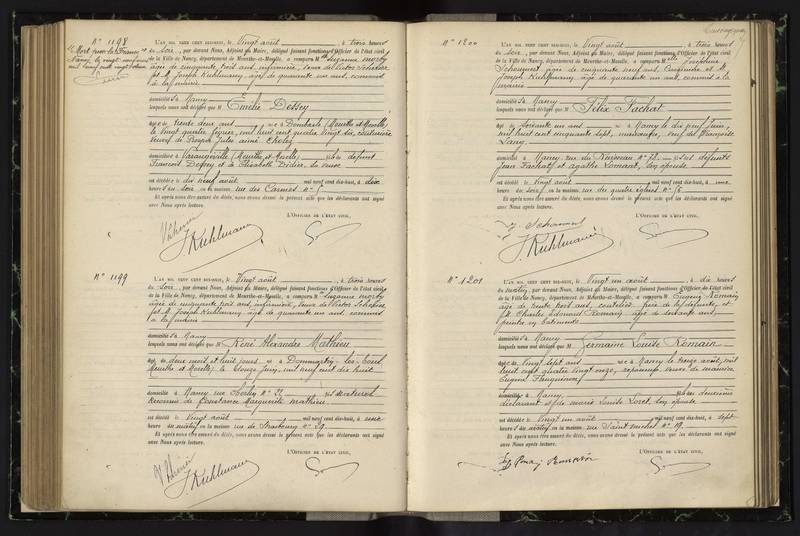 N° 1198
"Mort pour la France"
Nancy, le vingt
L'AN MIL NEUF CENT DIX-HUIT, le Vingt août, à trois heures
du soir, par devant Nous, Adjoint au Maire, délégué faisant fonctions d'Officier de l'état civil
de la Ville de Nancy, département de Meurthe-et-Moselle, a comparu M Suzanne
âgée de cinquante trois ans, infirmière, veuve de Victor
et M. Joseph Kuhlmann, âgé de quarante un ans, commis
à la mairie
domiciliés à Nancy
lesquels nous ont déclaré que M Emile Dessey
âgé de trente deux ans, né à Dombasle (Meurthe et Moselle)
le vingt quatre février, mil huit cent quatre vingt six,
veuf de Joseph Jules aimé
domicilié à Varangéville (Meurthe et Moselle) fils de défunt
François Dessey et de Elisabeth Didier, sa veuve
est décédé le dix neuf août mil neuf cent dix-huit, à dix
heures du soir, en la maison rue des Carmes n° 5
Et après nous être assuré du décès, nous avons dressé le présent acte que les déclarants ont signé
avec Nous après lecture.
L'OFFICIER DE L'ÉTAT CIVIL,
J. Kuhlmann
N° 1199
L'AN MIL NEUF CENT DIX-HUIT, le Vingt août, à trois heures
du soir, par devant Nous, Adjoint au Maire, délégué faisant fonctions d'Officier de l'état civil
de la Ville de Nancy, département de Meurthe-et-Moselle, a comparu M Suzanne
âgée de cinquante trois ans, infirmière, veuve de Victor
et M. Joseph Kuhlmann, âgé de quarante un ans, commis
à la mairie
domiciliés à Nancy
lesquels nous ont déclaré que M René Alexandre Mathieu
âgé de deux mois et huit jours, né à Dommartin-les-Toul
(Meurthe et Moselle) le douze juin, mil neuf cent dix huit
domicilié à Nancy rue n° 22, fils naturel
de Constance Marguerite Mathieu
est décédé le Vingt août mil neuf cent dix-huit, à onze
heures du matin, en la maison rue de Strasbourg n° 29
Et après nous être assuré du décès, nous avons dressé le présent acte que les déclarants ont signé
avec Nous après lecture.
L'OFFICIER DE L'ÉTAT CIVIL,
J. Kuhlmann
N° 1200
L'AN MIL NEUF CENT DIX-HUIT, le Vingt août, à trois heures
du soir, par devant Nous, Adjoint au Maire, délégué faisant fonctions d'Officier de l'état civil
de la Ville de Nancy, département de Meurthe-et-Moselle, a comparu M Joséphine
âgée de cinquante neuf ans, et M.
Joseph Kuhlmann, âgé de quarante un ans, commis à la
mairie
domiciliés à Nancy
lesquels nous ont déclaré que M Félix Fachat
âgé de soixante un ans, né à Nancy le dix neuf juin,
mil huit cent cinquante sept, veuf de Françoise
Lany
domicilié à Nancy rue du Ruisseau n° 12, fils de défunts
Jean Fachat et Agathe Lomant, son épouse
est décédé le vingt août mil neuf cent dix-huit, à une
heure du soir, en la maison rue des quatre églises n° 56
Et après nous être assuré du décès, nous avons dressé le présent acte que les déclarants ont signé
avec Nous après lecture.
L'OFFICIER DE L'ÉTAT CIVIL,
J. Kuhlmann
N° 1201
L'AN MIL NEUF CENT DIX-HUIT, le Vingt un août, à dix heures
du matin, par devant Nous, Adjoint au Maire, délégué faisant fonctions d'Officier de l'état civil
de la Ville de Nancy, département de Meurthe-et-Moselle, a comparu M Eugène Romain
âgé de trente trois ans, coutelier, frère de la défunte, et
M. Charles Edouard Romain âgé de soixante ans,
peintre en bâtiments
domiciliés à Nancy
lesquels nous ont déclaré que M Germaine Louise Romain
âgée de vingt sept ans, née à Nancy le treize août, mil
huit cent quatre vingt onze, repasseuse, veuve de Maurice
Eugène
domiciliée à Nancy, fille du deuxième
déclarant et de Marie Louise Loret, son épouse
est décédée le Vingt un août mil neuf cent dix-huit, à sept
heures du matin, en la maison rue Saint michel n° 19
Et après nous être assuré du décès, nous avons dressé le présent acte que les déclarants ont signé
avec Nous après lecture.
L'OFFICIER DE L'ÉTAT CIVIL,